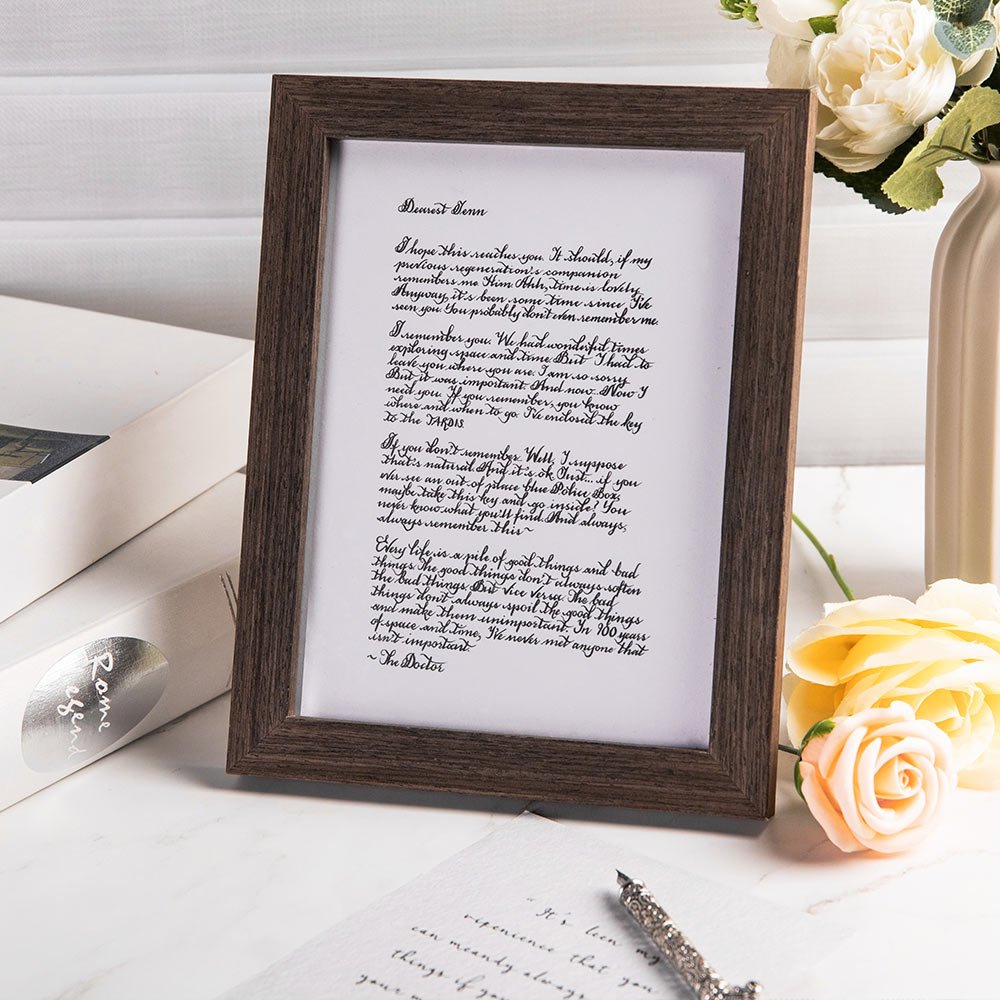 Dearest Jenn
I hope this reaches you. It should, if my
previous regeneration's companion
remembers me. Him Ahh, time is lovely
Anyway, it's been some time since, I've
seen you. You probably don't even remember me.
I remember you. We had wonderful times
exploring space and time. But I had to
leave you where you are. I am so sorry
But it was important. And now... Now I
need you. If you remember, you know
where and when to go. I've enclosed the key
to the TARDIS.
If you don't remember. Well, I suppose
that's natural. And it's ok. Just... if you
ever see an out of place blue Police Box,
maybe take this key and go inside? You
never know what you'll find. And always,
always remember this~
Every life is a pile of good things and bad
things. The good things don't always soften
the bad things. But Vice Versa. The bad
things don't always spoil the good things
and make them unimportant. In 900 years
of space and time, I've never met anyone that
isn't important.
~ The Doctor
Rome
egend
"It's been my
experience that you
can meandy always
things if you
your m